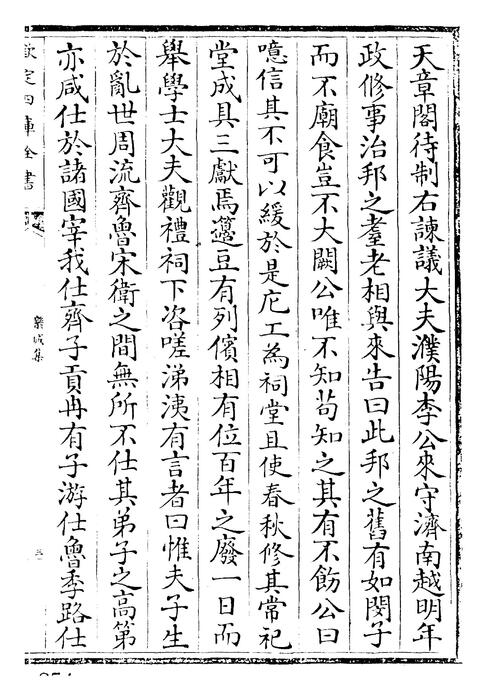 天章閣待制右諫議大夫濮陽李公來守濟南越明年
政修事治邦之耋老相與來告曰此邦之舊有如閔子
而不廟食豈不大闕公唯不知苟知之其有不飭公曰
噫信其不可以緩於是庀工為祠堂且使春秋修其常祀
堂成具三獻焉籩豆有列儐相有位百年之廢一日而
舉學士大夫觀禮祠下咨嗟涕洟有言者曰惟夫子生
於亂世周流齊魯宋衛之間無所不仕其弟子之高第
亦咸仕於諸國宰我仕齊子貢冉有子游仕魯季路仕
欽定四庫全書
欒城集